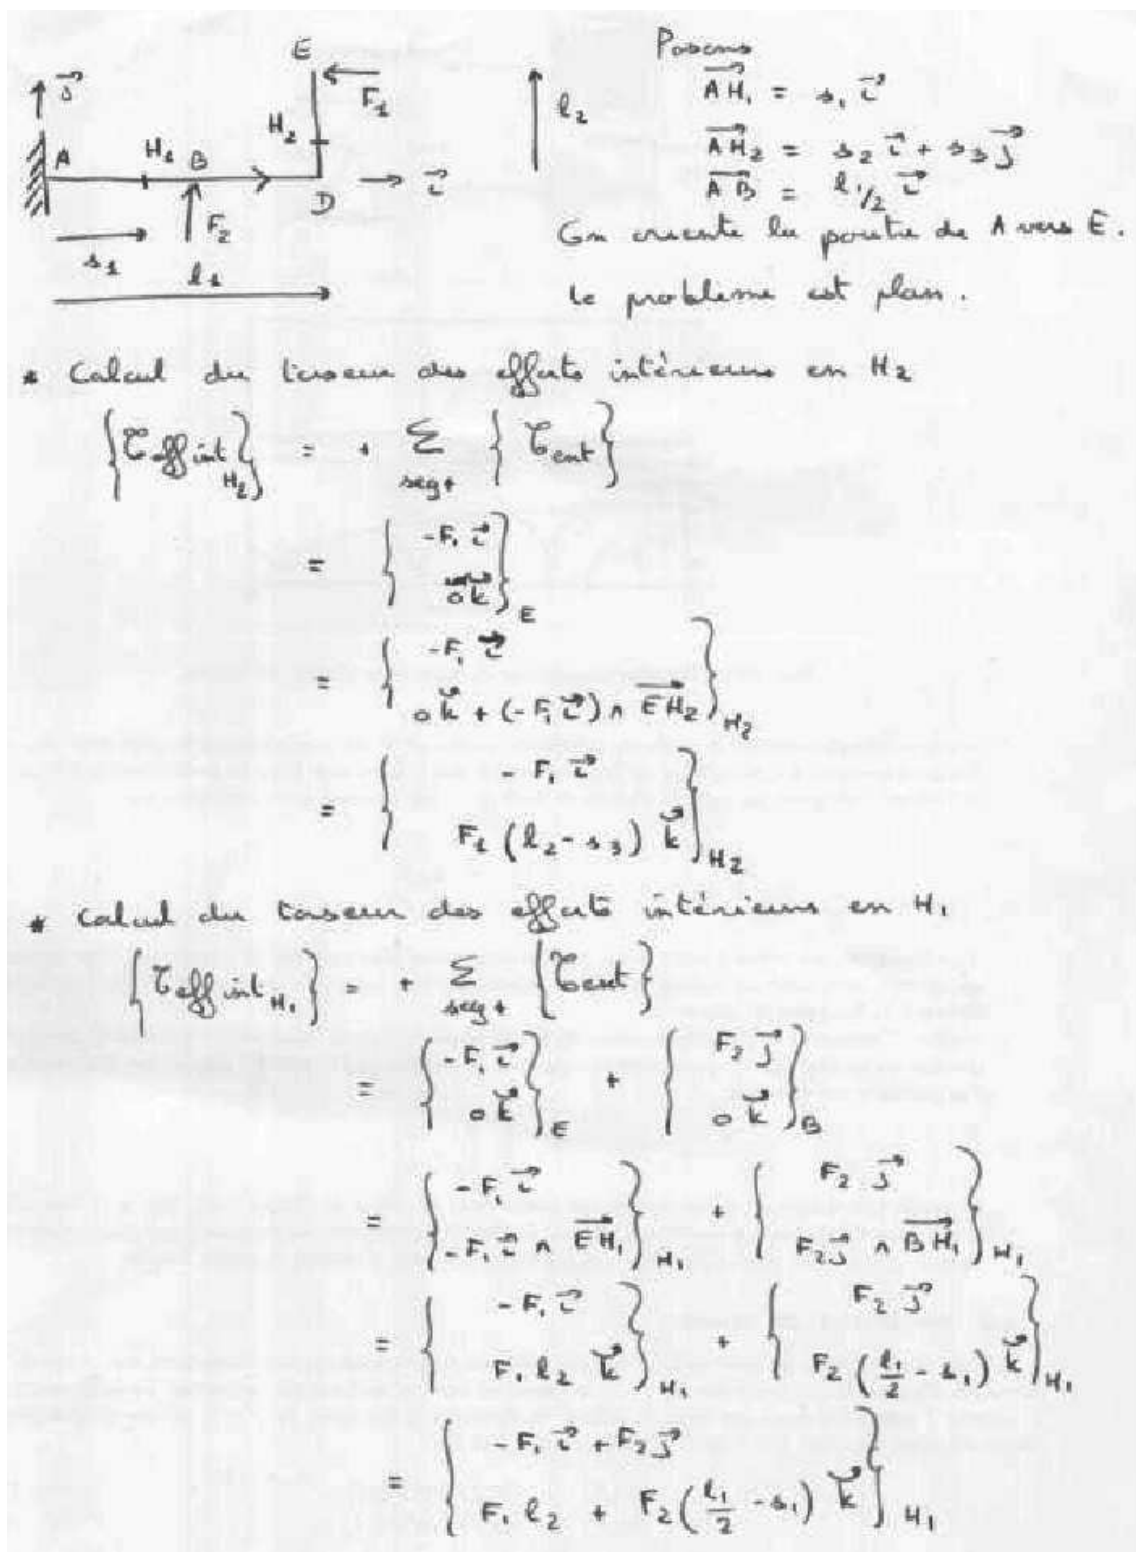 Posons
E
$\vec{j}$
F₁
l₂
$\overrightarrow{AH_1} = s_1 \vec{i}$
H₂
A H₁ B
$\overrightarrow{AH_2} = s_2 \vec{i} + s_3 \vec{j}$
D $\vec{i}$
$\overrightarrow{AB} = l_1/2 \, \vec{i}$
F₂
s₁
l₁
On oriente la poutre de A vers E.
le problème est plan.
* Calcul du torseur des efforts intérieurs en H₂
$\{\mathcal{T}_{eff\,int\,H_2}\} = + \sum_{seg+} \{\mathcal{T}_{ext}\}$
$= \{ -F_1 \vec{i} \; ; \; 0\vec{k} \}_E$
$= \{ -F_1 \vec{i} \; ; \; 0\vec{k} + (-F_1 \vec{i}) \wedge \overrightarrow{EH_2} \}_{H_2}$
$= \{ -F_1 \vec{i} \; ; \; F_1 (l_2 - s_3) \vec{k} \}_{H_2}$
* calcul du torseur des efforts intérieurs en H₁
$\{\mathcal{T}_{eff\,int\,H_1}\} = + \sum_{seg+} \{\mathcal{T}_{ext}\}$
$= \{ -F_1 \vec{i} \; ; \; 0\vec{k} \}_E + \{ F_2 \vec{j} \; ; \; 0\vec{k} \}_B$
$= \{ -F_1 \vec{i} \; ; \; -F_1 \vec{i} \wedge \overrightarrow{EH_1} \}_{H_1} + \{ F_2 \vec{j} \; ; \; F_2 \vec{j} \wedge \overrightarrow{BH_1} \}_{H_1}$
$= \{ -F_1 \vec{i} \; ; \; F_1 l_2 \vec{k} \}_{H_1} + \{ F_2 \vec{j} \; ; \; F_2 (\frac{l_1}{2} - s_1) \vec{k} \}_{H_1}$
$= \{ -F_1 \vec{i} + F_2 \vec{j} \; ; \; F_1 l_2 + F_2 (\frac{l_1}{2} - s_1) \vec{k} \}_{H_1}$